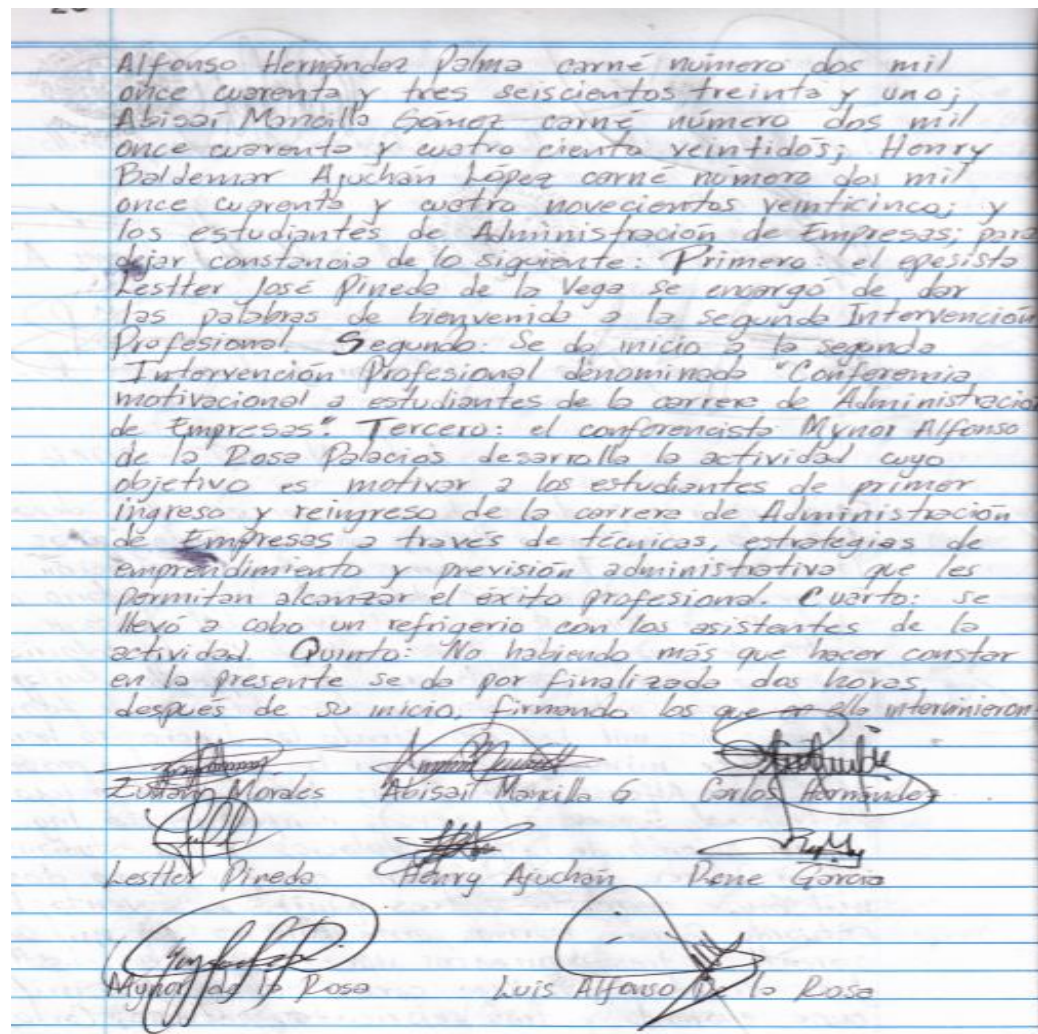 Alfonso Hernández Palma carné número dos mil
once cuarenta y tres seiscientos treinta y uno;
Abisaí Mancilla Gómez carné número dos mil
once cuarenta y cuatro ciento veintidós; Henry
Baldemar Ajuchán López carné número dos mil
once cuarenta y cuatro novecientos veinticinco; y
los estudiantes de Administración de Empresas; para
dejar constancia de lo siguiente: Primero: el epesista
Lestter José Pineda de la Vega se encargó de dar
las palabras de bienvenida a la segunda Intervención
Profesional. Segundo: Se da inicio a la segunda
Intervención Profesional denominada "Conferencia
motivacional a estudiantes de la carrera de Administración
de Empresas". Tercero: el conferencista Mynor Alfonso
de la Rosa Palacios desarrolla la actividad cuyo
objetivo es motivar a los estudiantes de primer
ingreso y reingreso de la carrera de Administración
de Empresas a través de técnicas, estrategias de
emprendimiento y previsión administrativa que les
permitan alcanzar el éxito profesional. Cuarto: se
llevó a cabo un refrigerio con los asistentes de la
actividad. Quinto: No habiendo más que hacer constar
en la presente se da por finalizada dos horas
después de su inicio, firmando los que en ella intervinieron
Morales Abisaí Mancilla G. Carlos Hernández
Lestter Pineda Henry Ajuchán Rene García
Mynor de la Rosa Luis Alfonso De la Rosa